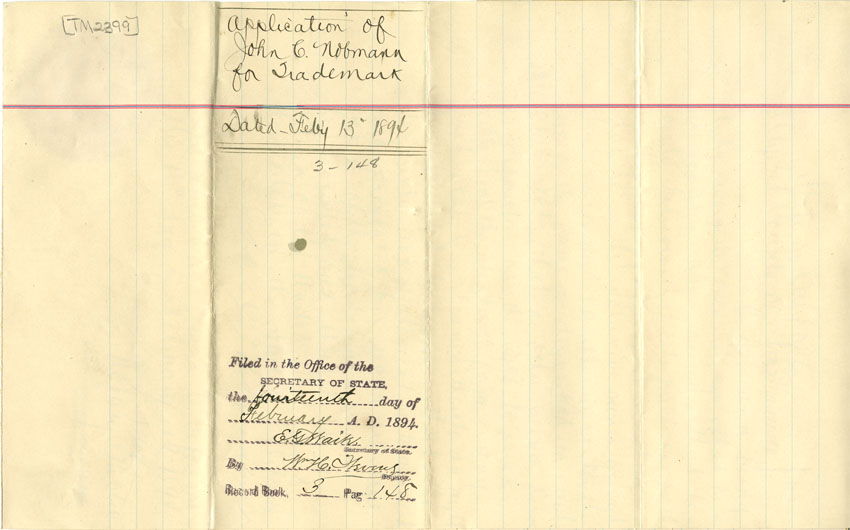 [TM2399]
Application of
John C. Nobmann
for Trademark
Dated - Feby 13" 1894
3 - 148
Filed in the Office of the
SECRETARY OF STATE,
the fourteenth day of
February A. D. 1894.
E. G. Waite
Secretary of State.
By W. H.
Deputy.
Record Book, 3 Page 148